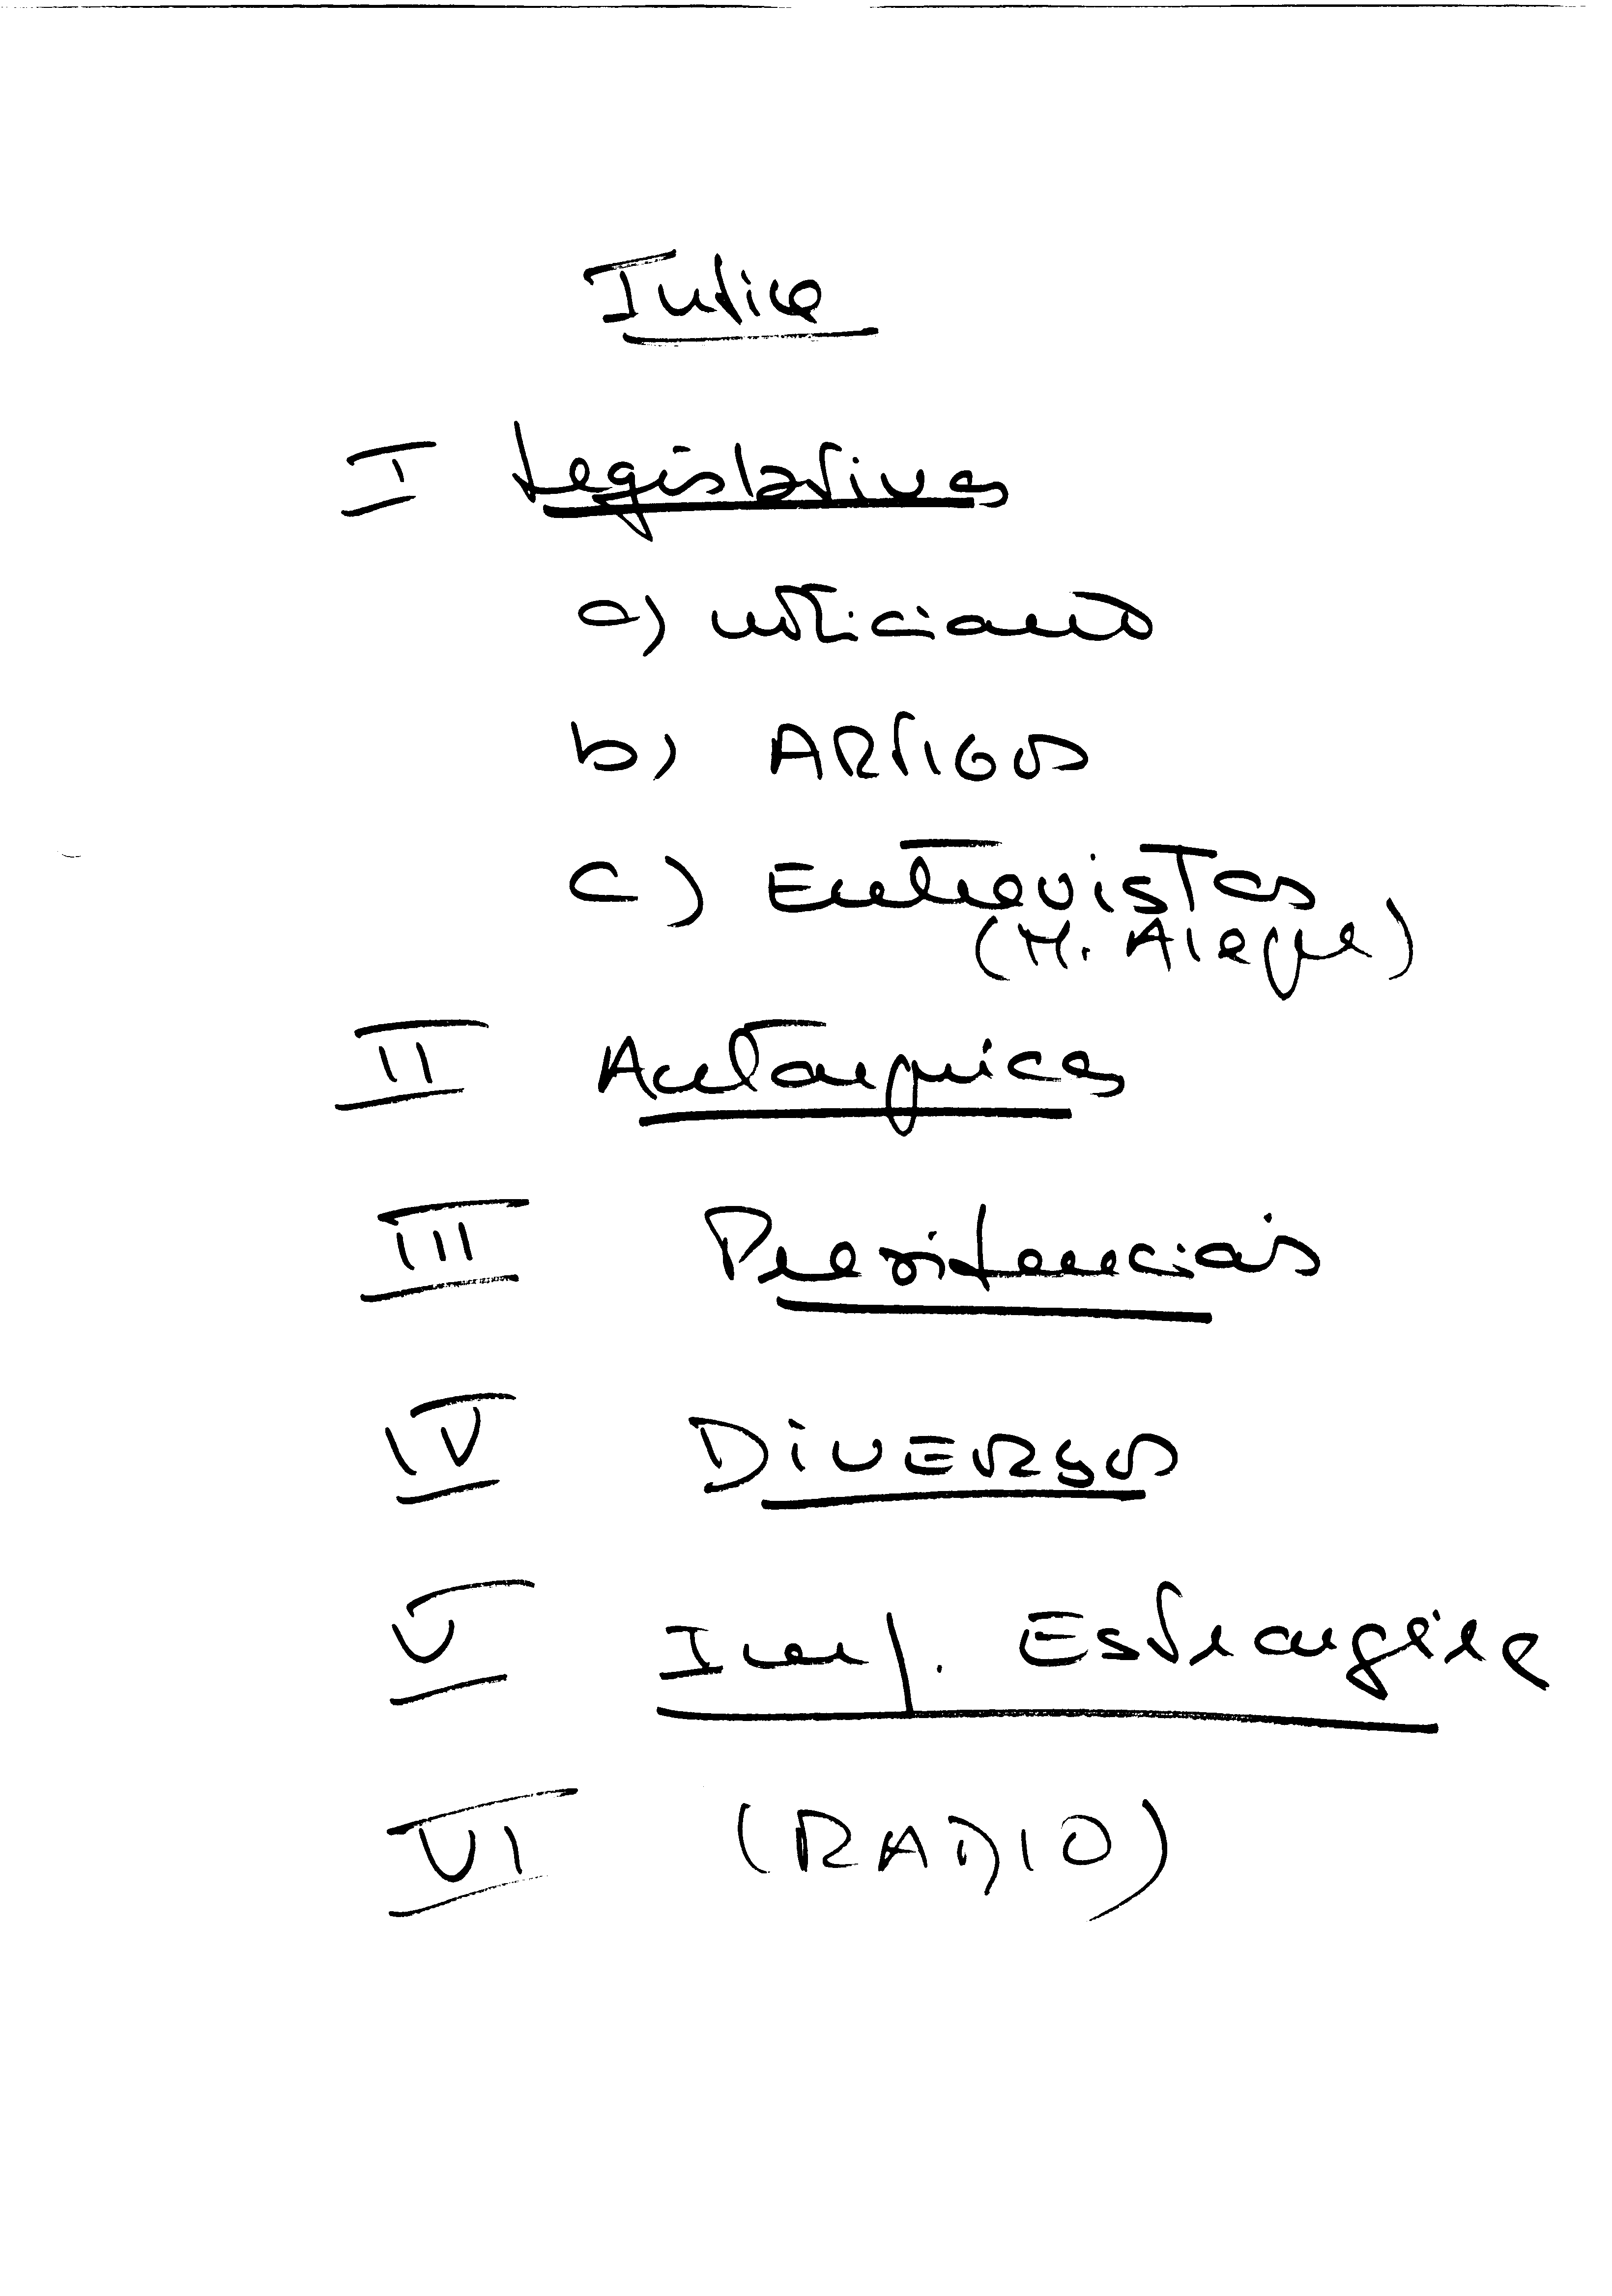 Indice
I Legislativas
a) noticiario
b) ARTIGOS
c) Entrevistas
(M. Alegre)
II Autarquicas
III Presidenciais
IV DIVERSOS
V Imp. Estrangeira
VI (RADIO)